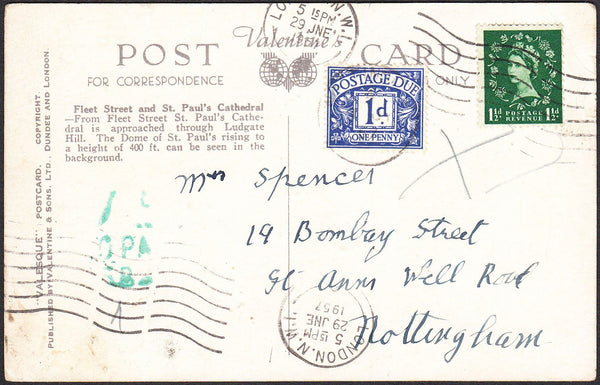 LONDON.N.W.1.
5 15PM
29 JNE
1957
POST Valentine's CARD
FOR CORRESPONDENCE ONLY
Fleet Street and St. Paul's Cathedral
—From Fleet Street St. Paul's Cathe-
dral is approached through Ludgate
Hill. The Dome of St. Paul's rising to
a height of 400 ft. can be seen in the
background.
"VALESQUE" POSTCARD. COPYRIGHT.
PUBLISHED BY VALENTINE & SONS, LTD., DUNDEE AND LONDON.
POSTAGE DUE
1d.
ONE PENNY
1½d POSTAGE REVENUE 1½d
Mrs Spencer
19 Bombay Street
St Anns Well Road
Nottingham
LONDON.N.W.1.
5 15PM
29 JNE
1957